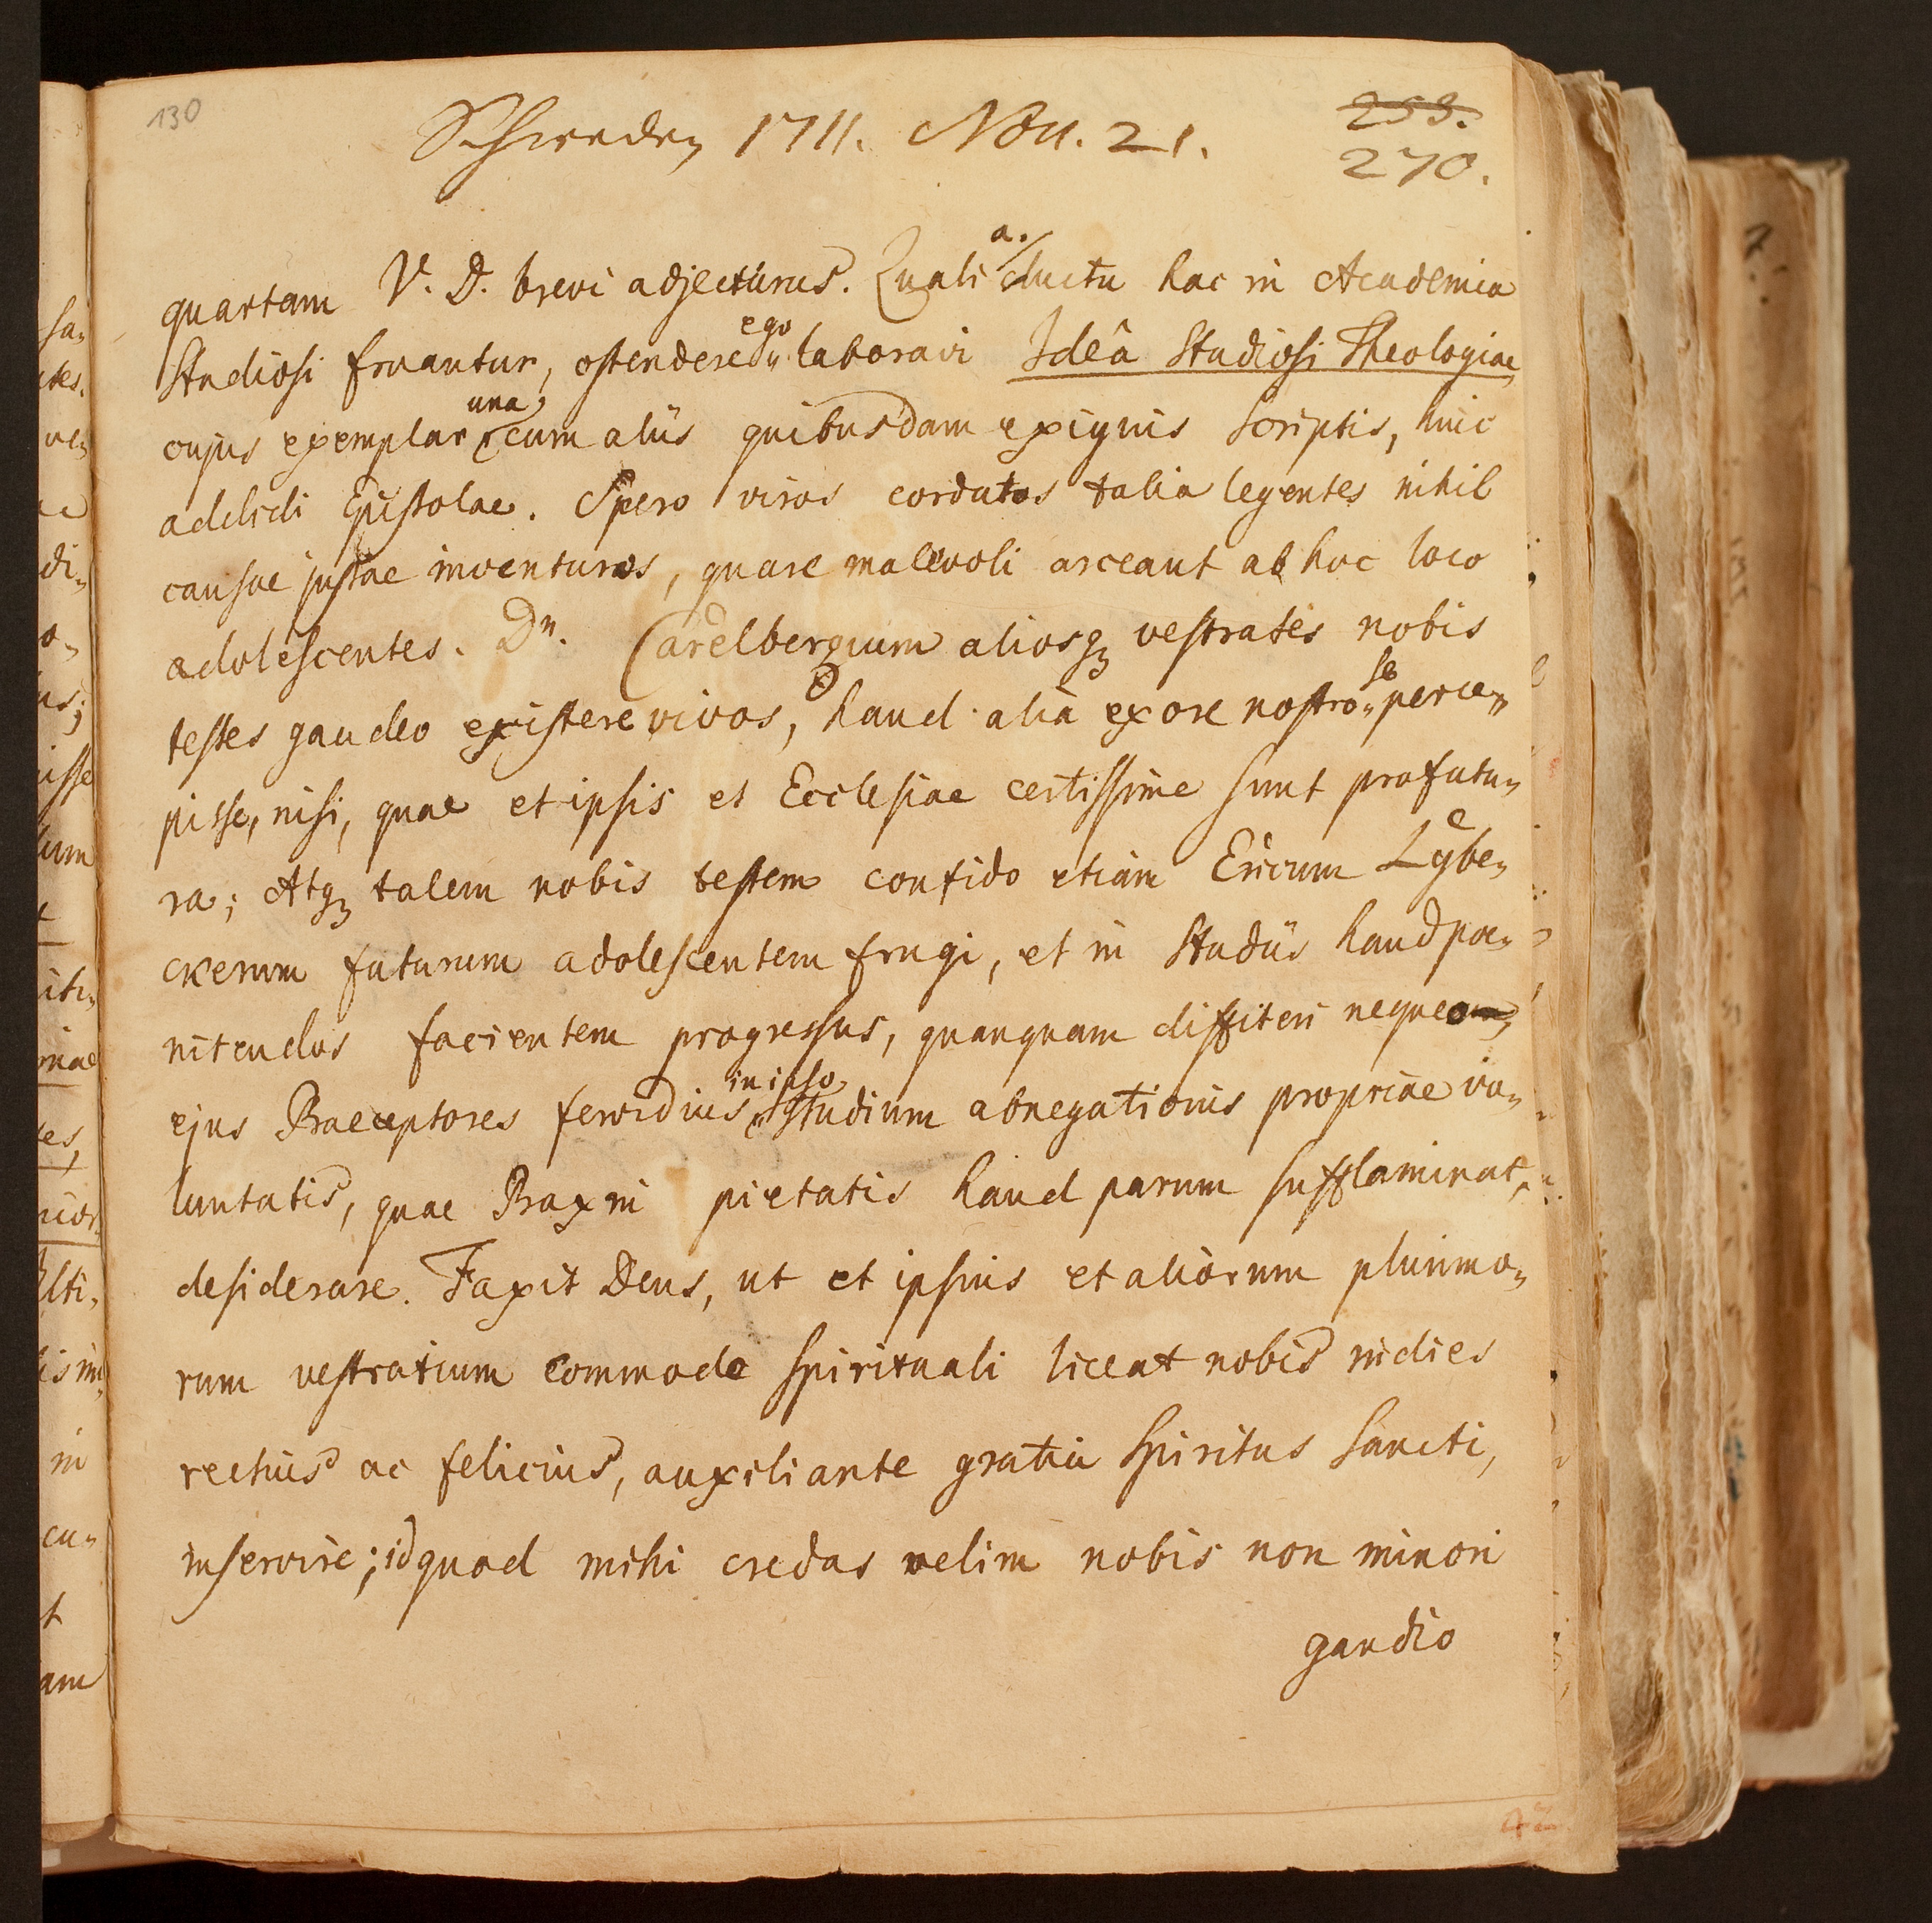 130
Schweden 1711. Nov. 21.
253.
270.
quartam V. D. brevi adjecturus. Quali a. ductu hac in Academia
Studiosi fruantur, ostendere ego laboravi Ideâ Studiosi Theologiae,
cujus exemplar una cum aliis quibusdam exiguis scriptis, huic
addidi Epistolae. Spero viros cordatos talia legentes nihil
causae justae inventuros, quare malevoli arceant ab hoc loco
adolescentes. Dn. Carelbergium aliosq; vestrates nobis
testes gaudeo existere vivos, haud alia ex ore nostro se perce-
pisse, nisi, quae et ipsis et Ecclesiae certissime sunt profutu-
ra; Atq; talem nobis testem confido etiam Ericum Lybe-
ckerum futurum adolescentem frugi, et in Studiis haud poe-
nitendos facientem progressus, quanquam diffiteri nequeam,
ejus Praeceptores fervidius in ipso Studium abnegationis propriae vo-
luntatis, quae Praxin pietatis haud parum sufflaminat,
desiderare. Faxit Deus, ut et ipsius et aliorum plurimo-
rum vestratium commodo spirituali liceat nobis indies
rectius ac felicius, auxiliante gratia Spiritus Sancti,
inservire; id quod mihi credas velim nobis non minori
gaudio